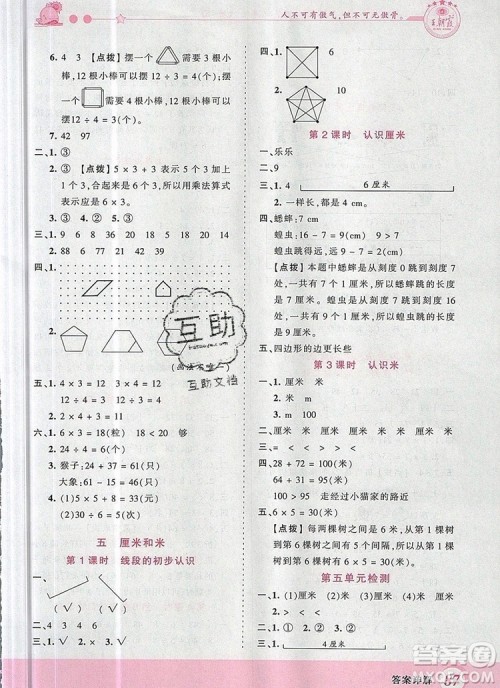 人不可有傲气，但不可无傲骨。
王朝霞
6. 4 【点拨】 需要3根小棒，
12根小棒可以摆
12÷3=4(个)
需要4根小棒，12根小棒可以摆
12÷4=3(个)
7. 42 97
二、1. ③
2. ③ 【点拨】 5×3+3表示5个3相加再加3,即6个3相加，所以用乘法算式表示是6×3。
3. ③ 4. ② 5. ③
三、1. 8 9 18 20 18 14
2. 88 77 6 13 39 41
四、1.
2.
五、1. 4×3=12 3×4=12
12÷4=3 12÷3=4
六、1. 6×3=18(粒) 18<20 够
2. 24÷4=6(个)
3. 猴子：24÷3=8(只)
大象：56-11=45(只)
4. (1)5×5+8=33(元)
(2)8÷2=4(个)
五 厘米和米
第1课时 线段的初步认识
一、
(√) ( ) (√) (√)
二、4 3 4 6
三、1. 3 6
四、
第2课时 认识厘米
一、乐乐
二、9
三、1. 4 6厘米
2. 一样长，都是4厘米。
四、蟋蟀：7 cm
蝗虫：16-7=9(cm)
蝗虫跳得远，远9-7=2(cm)
【点拨】 本题中蟋蟀是从刻度0跳到刻度7的，一共有7个1厘米。蝗虫是从刻度7跳到刻度16的，一共有9个1厘米。所以蝗虫跳的距离更远。
五、四边形的边更长些
第3课时 认识米
一、1. 厘米 米
2. 米 厘米 厘米 米 米 厘米
三、= < < > < >
四、28+72=100(米)
64+31=95(米)
100>95 走经过小猫家的路近
五、6×5=30(米)
【点拨】 每两棵树之间为1个间隔，从第1棵树到第6棵树有5个间隔，所以从第1棵树到第6棵树的距离为6×5=30(米)。
第五单元检测
一、1. (1)厘米 (2)米 (3)厘米 (4)米
2. <
3. 4厘米
互助
互助文档
答案详解 87